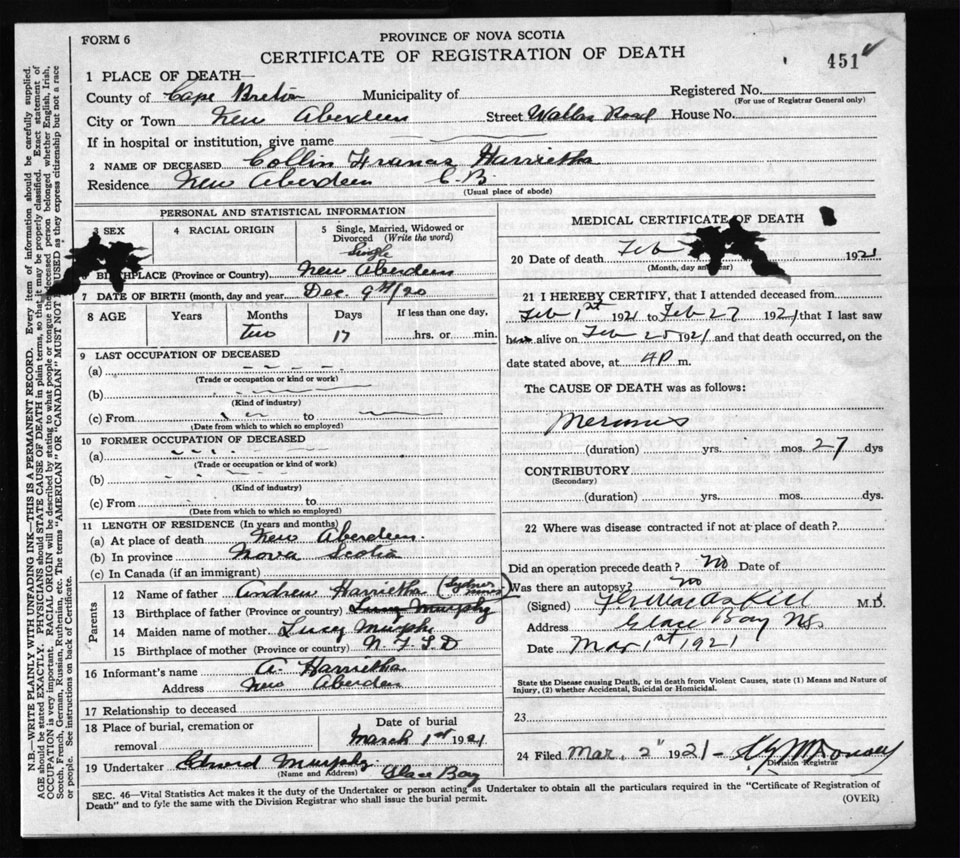 FORM 6
PROVINCE OF NOVA SCOTIA
CERTIFICATE OF REGISTRATION OF DEATH
451
1 PLACE OF DEATH—
County of Cape Breton Municipality of Registered No.
(For use of Registrar General only)
City or Town New Aberdeen Street Wallas Road House No.
If in hospital or institution, give name
2 NAME OF DECEASED Collin Francis Harrietha
Residence New Aberdeen C.B.
(Usual place of abode)
PERSONAL AND STATISTICAL INFORMATION
3 SEX
4 RACIAL ORIGIN
5 Single, Married, Widowed or
Divorced (Write the word)
Single
6 BIRTHPLACE (Province or Country) New Aberdeen
7 DATE OF BIRTH (month, day and year) Dec. 9th/20
8 AGE Years Months Days If less than one day,
Two 17 hrs. or min.
9 LAST OCCUPATION OF DECEASED
(a)
(Trade or occupation or kind of work)
(b)
(Kind of industry)
(c) From to
(Date from which to which so employed)
10 FORMER OCCUPATION OF DECEASED
(a)
(Trade or occupation or kind of work)
(b)
(Kind of industry)
(c) From to
(Date from which to which so employed)
11 LENGTH OF RESIDENCE (In years and months)
(a) At place of death New Aberdeen.
(b) In province Nova Scotia
(c) In Canada (if an immigrant)
Parents
12 Name of father Andrew Harrietha (Sydney Mines)
13 Birthplace of father (Province or country) Lucy Murphy
14 Maiden name of mother Lucy Murphy
15 Birthplace of mother (Province or country) N.F.L.D
16 Informant's name A. Harrietha
Address New Aberdeen
17 Relationship to deceased
18 Place of burial, cremation or
removal
Date of burial
March 1st 1921
19 Undertaker Edward Murphy Glace Bay
(Name and Address)
MEDICAL CERTIFICATE OF DEATH
20 Date of death Feb 1921
(Month, day and year)
21 I HEREBY CERTIFY, that I attended deceased from
Feb 1st 1921 to Feb 27 1921 that I last saw
alive on Feb 25 1921 and that death occurred, on the
date stated above, at 4P m.
The CAUSE OF DEATH was as follows:
(duration) yrs. mos. 27 dys
CONTRIBUTORY
(Secondary)
(duration) yrs. mos. dys.
22 Where was disease contracted if not at place of death?
Did an operation precede death? No Date of
Was there an autopsy? no
(Signed) M.D.
Address Glace Bay NS.
Date Mar 1st 1921
State the Disease causing Death, or in death from Violent Causes, state (1) Means and Nature of
Injury, (2) whether Accidental, Suicidal or Homicidal.
23
24 Filed Mar. 2" 1921
Division Registrar
SEC. 46—Vital Statistics Act makes it the duty of the Undertaker or person acting as Undertaker to obtain all the particulars required in the "Certificate of Registration of
Death" and to fyle the same with the Division Registrar who shall issue the burial permit.
(OVER)
N.B.—WRITE PLAINLY WITH UNFADING INK—THIS IS A PERMANENT RECORD. Every item of information should be carefully supplied.
AGE should be stated EXACTLY. PHYSICIANS should STATE CAUSE OF DEATH in plain terms, so that it may be properly classified. Exact statement of
OCCUPATION is very important. RACIAL ORIGIN will be described by stating to what people or tongue the deceased person belonged whether English, Irish,
Scotch, French, German, Russian, Ruthenian, etc. The terms "AMERICAN" or "CANADIAN" MUST NOT BE USED as they express citizenship but not a race
or people. See instructions on back of Certificate.